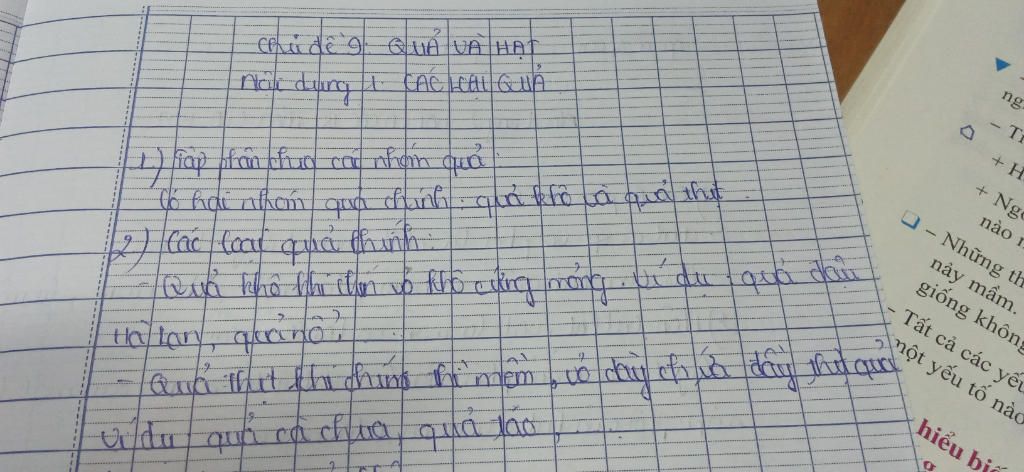 Chủ đề 9: QUẢ VÀ HẠT
Nội dung 1: CÁC LOẠI QUẢ
1) Tập phân chia các nhóm quả:
Có hai nhóm quả chính: quả khô và quả thịt
2) Các loại quả chính:
- Quả khô khi chín vỏ khô cứng mỏng. Ví dụ: quả đậu
Hà Lan, quả nổ
- Quả thịt khi chín thì mềm, vỏ dày chứa đầy thịt quả
ví dụ quả cà chua, quả táo,
ng
- T
+ H
+ Ngo
nào n
- Những th
nảy mầm.
giống không
- Tất cả các yếu
một yếu tố nào
hiểu biế